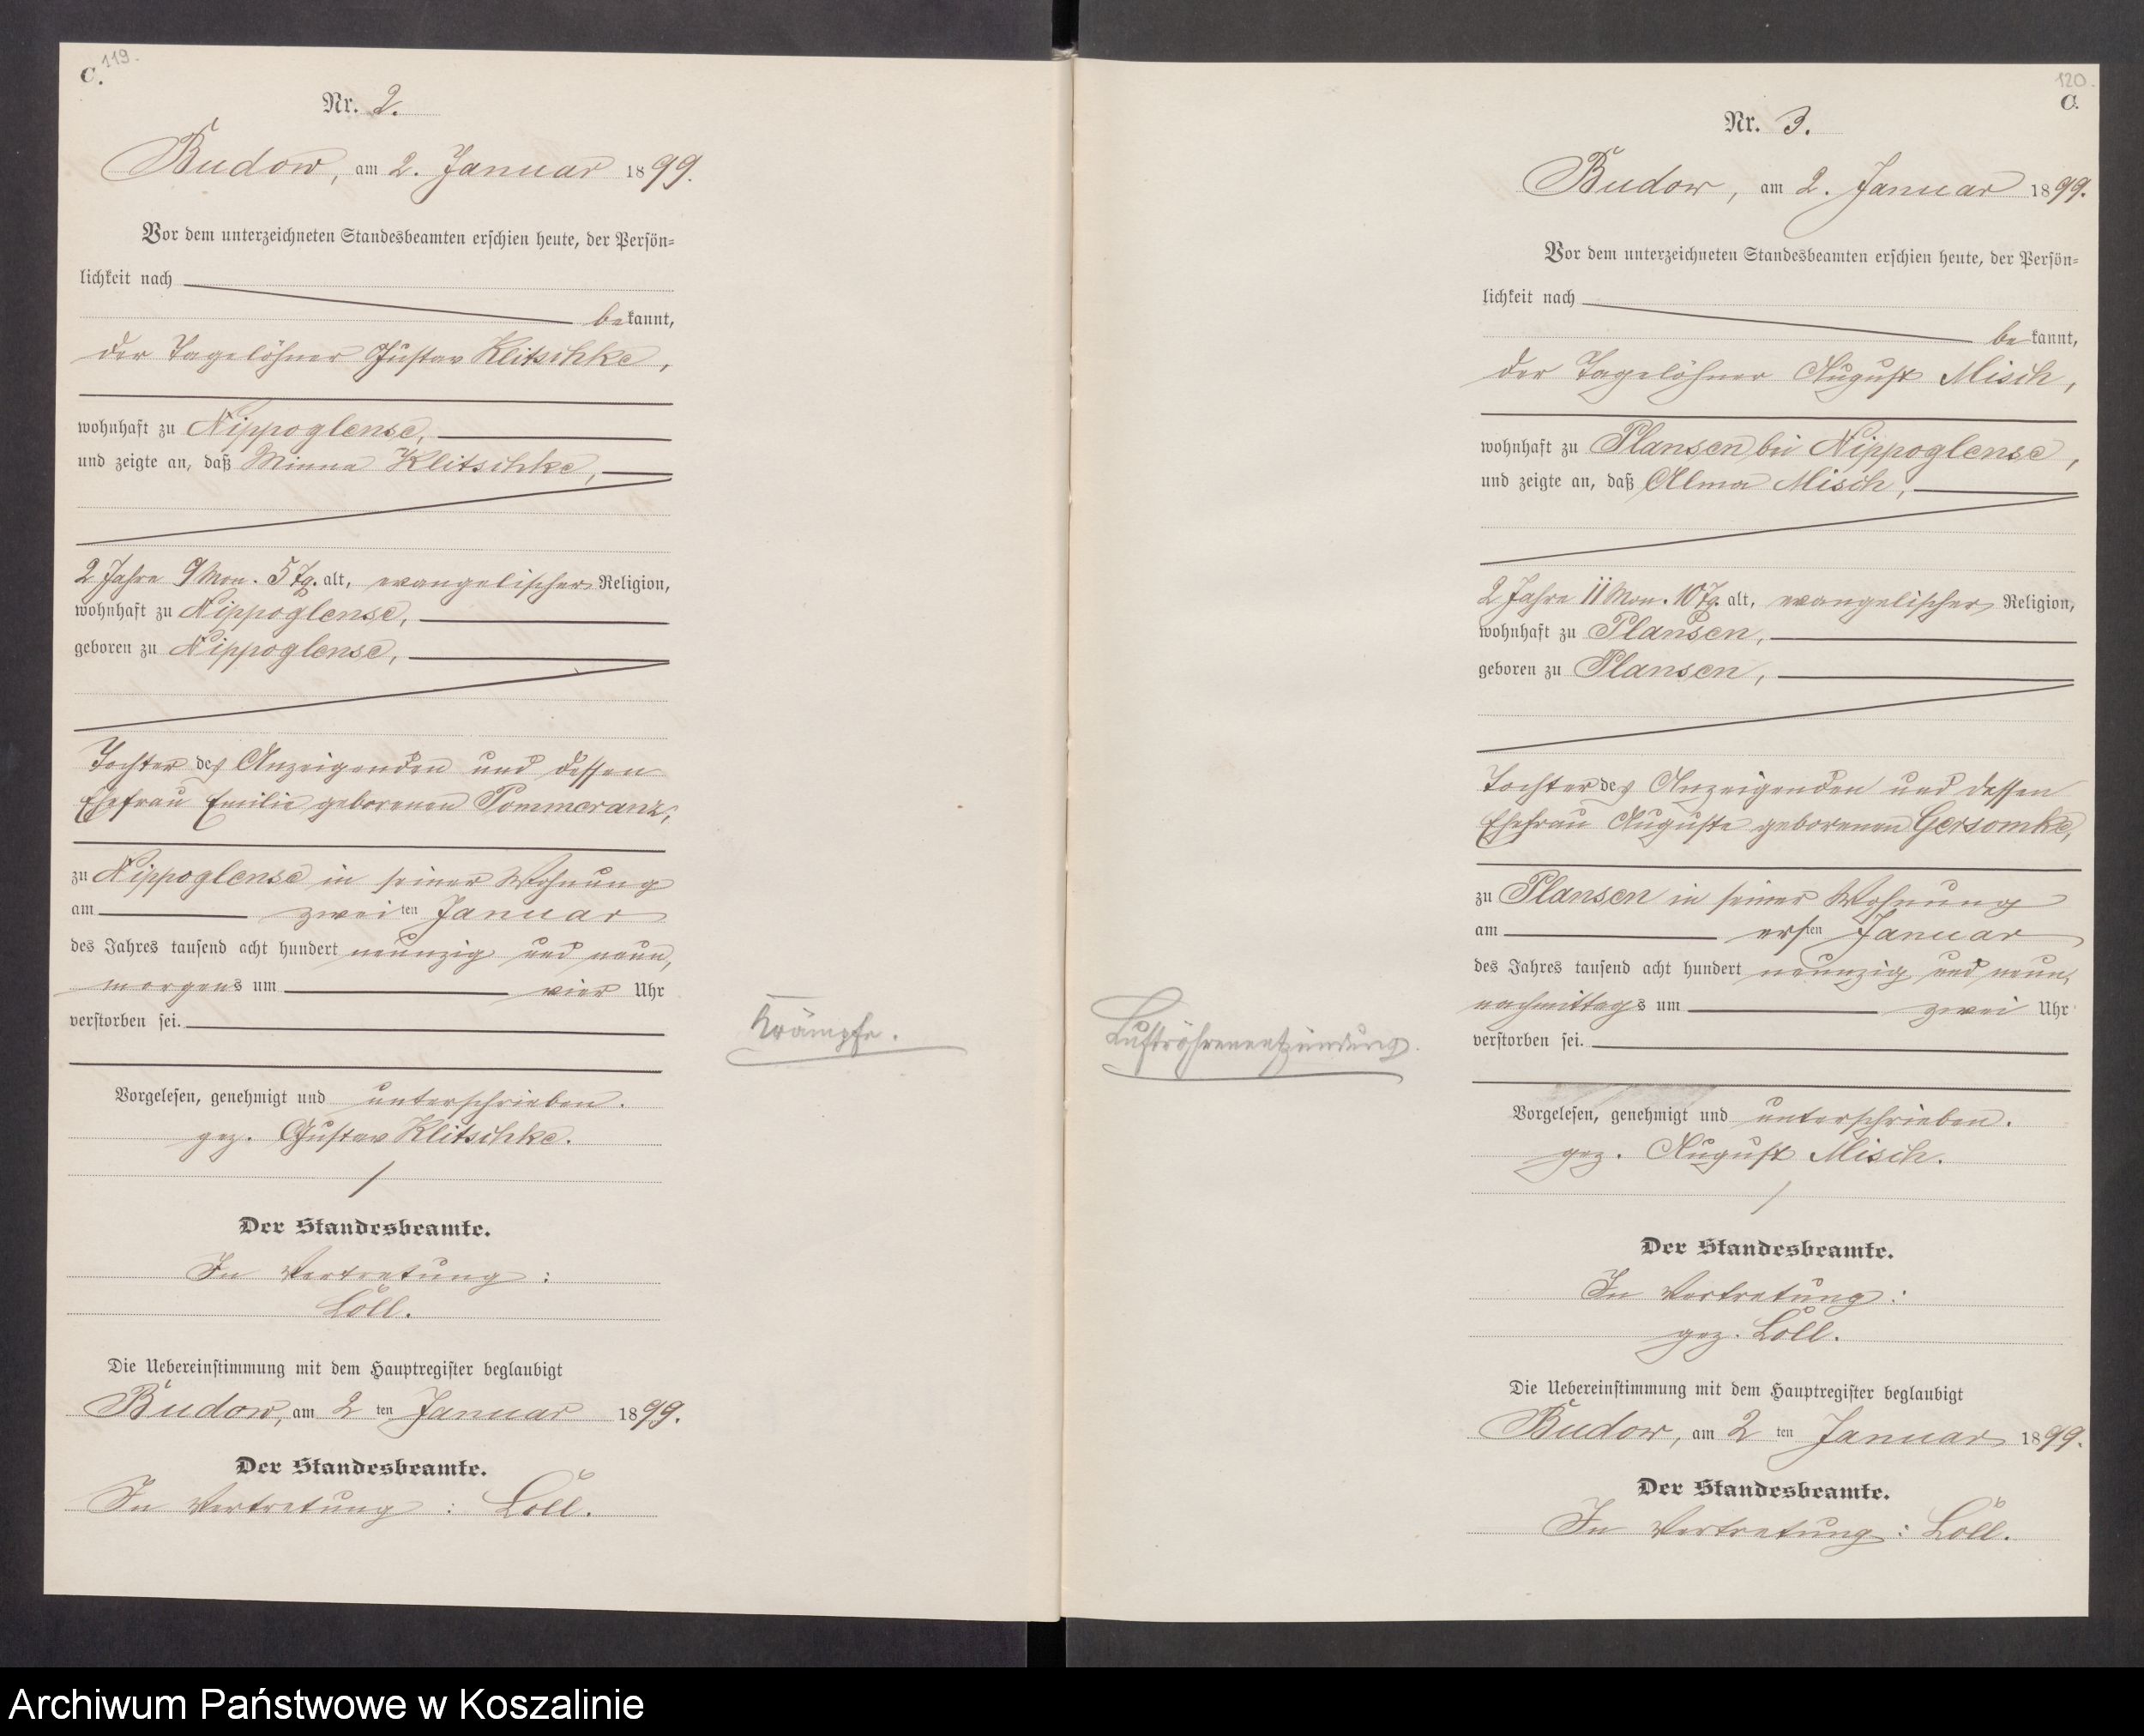 C. 119.
Nr. 2.
Budow, am 2. Januar 1899.
Vor dem unterzeichneten Standesbeamten erschien heute, der Persön=
lichkeit nach
bekannt,
der Tagelöhner Gustav Klitschke,
wohnhaft zu Nippoglense,
und zeigte an, daß Minna Klitschke,
2 Jahre 9 Mon. 5 Tg. alt, evangelischer Religion,
wohnhaft zu Nippoglense,
geboren zu Nippoglense,
Tochter des Anzeigenden und dessen
Ehefrau Emilie geborenen Pommeranz,
zu Nippoglense in seiner Wohnung
am zweiten Januar
des Jahres tausend acht hundert neunzig und neun,
morgens um vier Uhr
verstorben sei.
Krämpfe.
Vorgelesen, genehmigt und unterschrieben.
gez. Gustav Klitschke.
Der Standesbeamte.
In Vertretung:
Löll.
Die Uebereinstimmung mit dem Hauptregister beglaubigt
Budow, am 2 ten Januar 1899.
Der Standesbeamte.
In Vertretung: Löll.
120.
C.
Nr. 3.
Budow, am 2. Januar 1899.
Vor dem unterzeichneten Standesbeamten erschien heute, der Persön=
lichkeit nach
bekannt,
der Tagelöhner August Misch,
wohnhaft zu Plansen bei Nippoglense,
und zeigte an, daß Alma Misch,
2 Jahre 11 Mon. 10 Tg. alt, evangelischer Religion,
wohnhaft zu Plansen,
geboren zu Plansen,
Tochter des Anzeigenden und dessen
Ehefrau Auguste geborenen Gersomke,
zu Plansen in seiner Wohnung
am ersten Januar
des Jahres tausend acht hundert neunzig und neun,
nachmittags um zwei Uhr
verstorben sei.
Luftröhrenentzündung.
Vorgelesen, genehmigt und unterschrieben.
gez. August Misch.
Der Standesbeamte.
In Vertretung:
gez. Löll.
Die Uebereinstimmung mit dem Hauptregister beglaubigt
Budow, am 2 ten Januar 1899.
Der Standesbeamte.
In Vertretung: Löll.
Archiwum Państwowe w Koszalinie